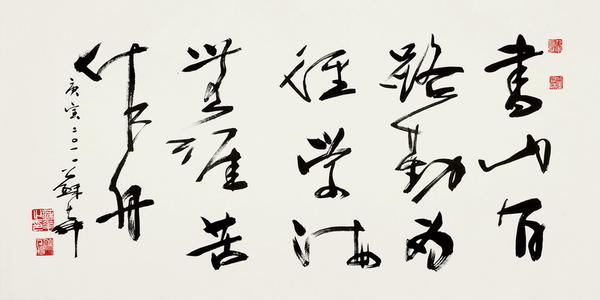 書山有
路勤为
徑学海
無涯苦
作舟
庚寅二〇一〇蘇